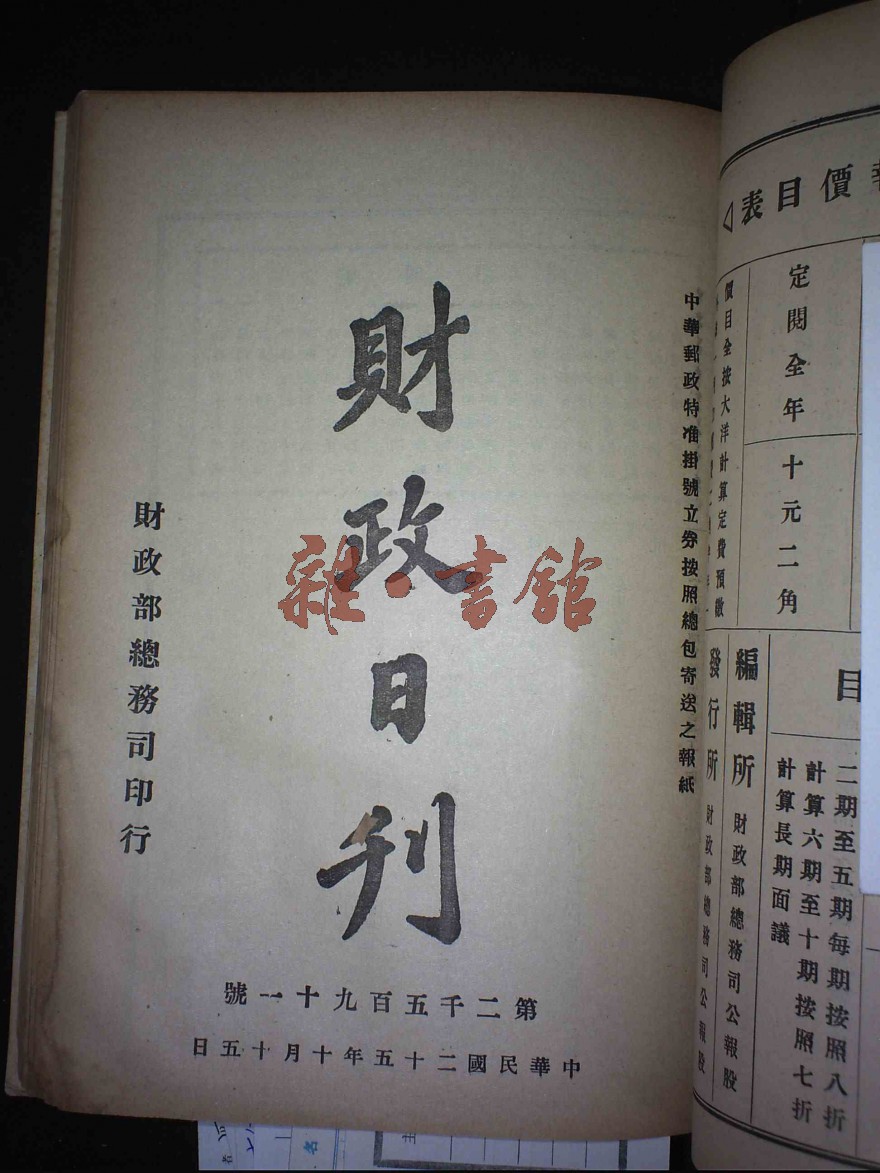 表目價
定閱全年
十元二角
價目全按大洋計算定費預繳
目
二期至五期每期按照八折
計算六期至十期按照七折
計算長期面議
編輯所 財政部總務司公報股
發行所 財政部總務司公報股
中華郵政特准掛號立券按照總包寄送之報紙
財政日刊
雜·書館
第二千五百九十一號
中華民國二十五年十月十五日
財政部總務司印行